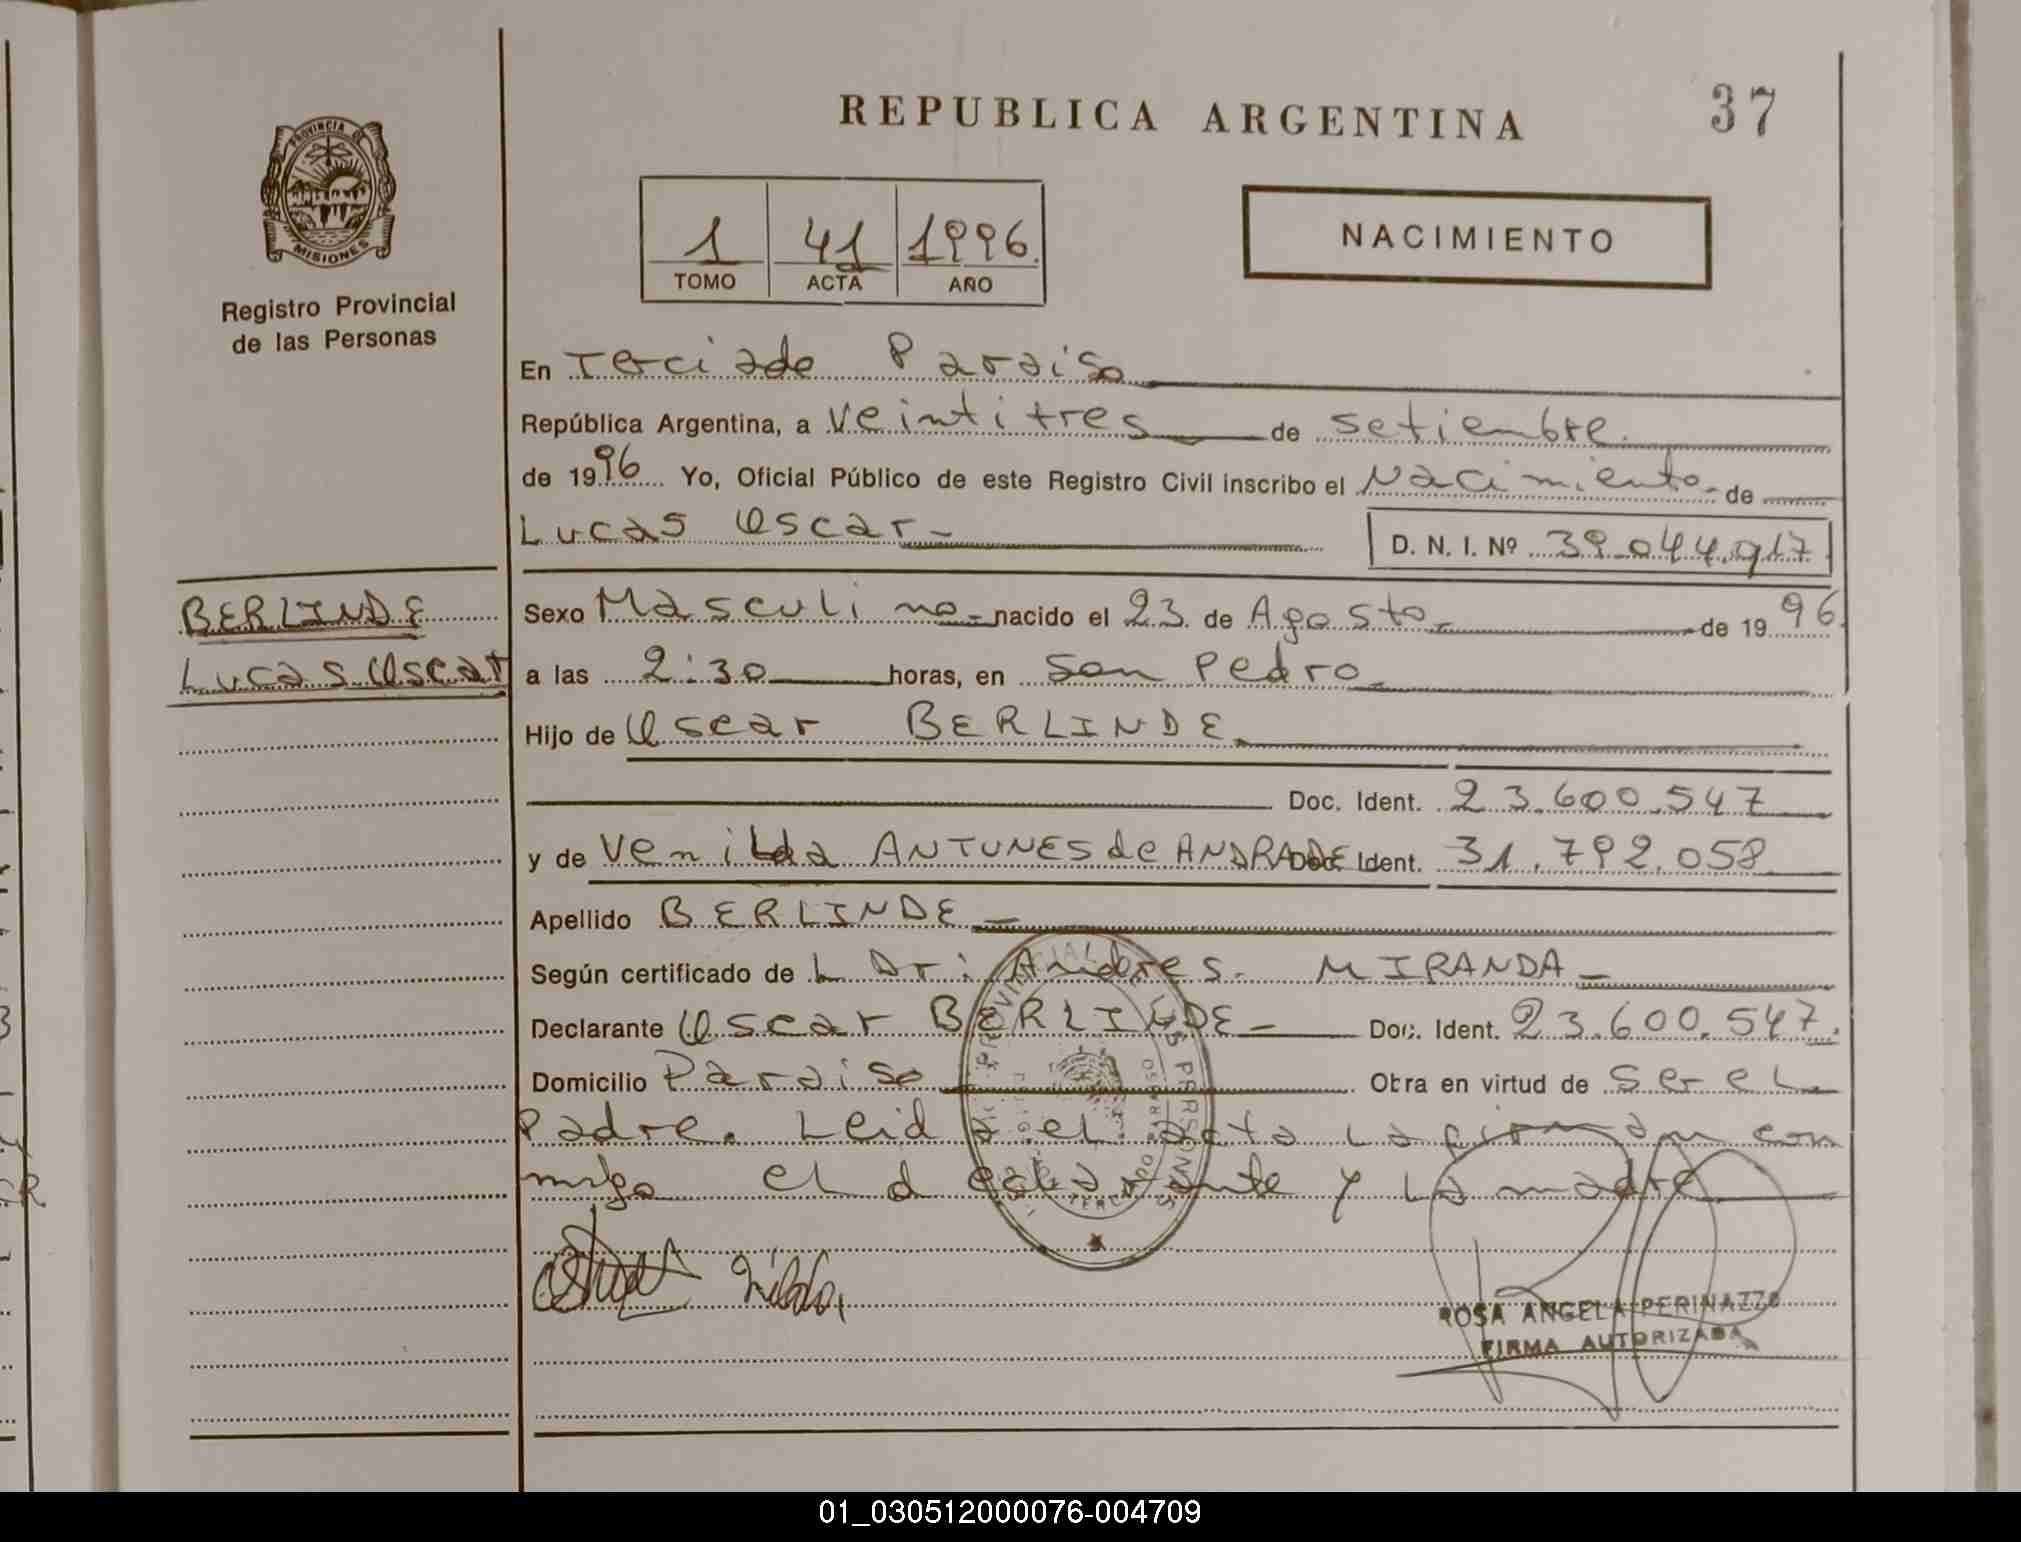 REPUBLICA ARGENTINA
37
PROVINCIA DE
MISIONES
Registro Provincial
de las Personas
1 41 1996.
TOMO ACTA AÑO
NACIMIENTO
En Terciado Paraiso
República Argentina, a Veintitres de setiembre.
de 1996 Yo, Oficial Público de este Registro Civil inscribo el Nacimiento- de
Lucas Oscar-
D. N. I. Nº 39.044.917
BERLINDE
Lucas Oscar
Sexo Masculino- nacido el 23 de Agosto- de 1996.
a las 2:30 horas, en San Pedro-
Hijo de Oscar BERLINDE-
Doc. Ident. 23.600.547
y de Venilda ANTUNES de ANDRADE Doc. Ident. 31.792.058
Apellido BERLINDE-
Según certificado de L Dr: Andres. MIRANDA-
Declarante Oscar BERLINDE- Doc. Ident. 23.600.547.
Domicilio Paraiso Obra en virtud de Ser el
Padre. Leida el acta la firman con
migo el declarante y la madre
ROSA ANGELA PERINAZZO
FIRMA AUTORIZADA
01_030512000076-004709